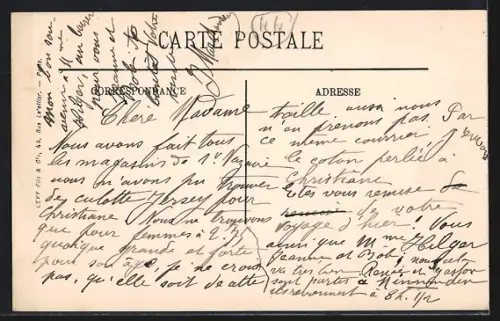 (44)
CARTE POSTALE
CORRESPONDANCE
ADRESSE
LEVY Fils & Cie, 44, Rue Letellier. — Paris.
Chère Madame
Nous avons fait tous
les magasins de St Nazaire
nous n'avons pu trouver
de culotte Jersey pour
Christiane Nous ne trouvons
que pour femmes à 2.75
quoique grande et forte
pour son âge je ne crois
pas, qu'elle soit de cette
taille aussi nous
n'en prenons pas. Par
ce même courrier j'envoie
le coton perlé à
Christiane
êtes vous remise de
de votre
voyage d'hier! Vous
ainsi que Mme Hilger
Jeanne et Bob! nous cela
va très bien. Renée et Gaston
sont partis à
ils reviennent à 8h. 1/2
Mon bon sou-
venir à Mme
Hilger, un baiser
pour vous
Jeanne et
Bob